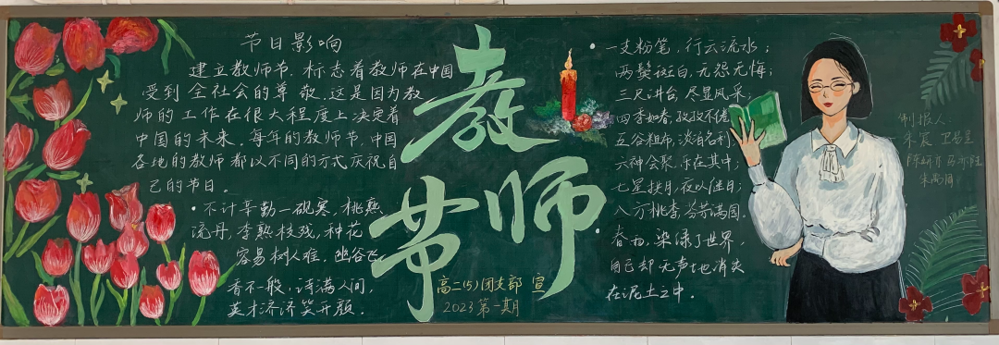 节日影响
建立教师节，标志着教师在中国
受到全社会的尊敬。这是因为教
师的工作在很大程度上决定着
中国的未来。每年的教师节，中国
各地的教师都以不同的方式庆祝自
己的节日。
·不计辛勤一砚寒，桃熟
流丹，李熟枝残，种花
容易树人难。幽谷飞
香不一般，诗满人间，
英才济济笑开颜。
教师节
高二(5)团支部 宣
2023 第一期
·一支粉笔，行云流水；
两鬓斑白，无怨无悔；
三尺讲台，尽显风采；
四季如春，孜孜不倦；
五谷粗布，淡泊名利；
六神会聚，乐在其中；
七星拱月，夜以继日；
八方桃李，芬芳满园。
春雨，染绿了世界，
自己却无声地消失
在泥土之中。
制报人：
朱宸 卫昌星